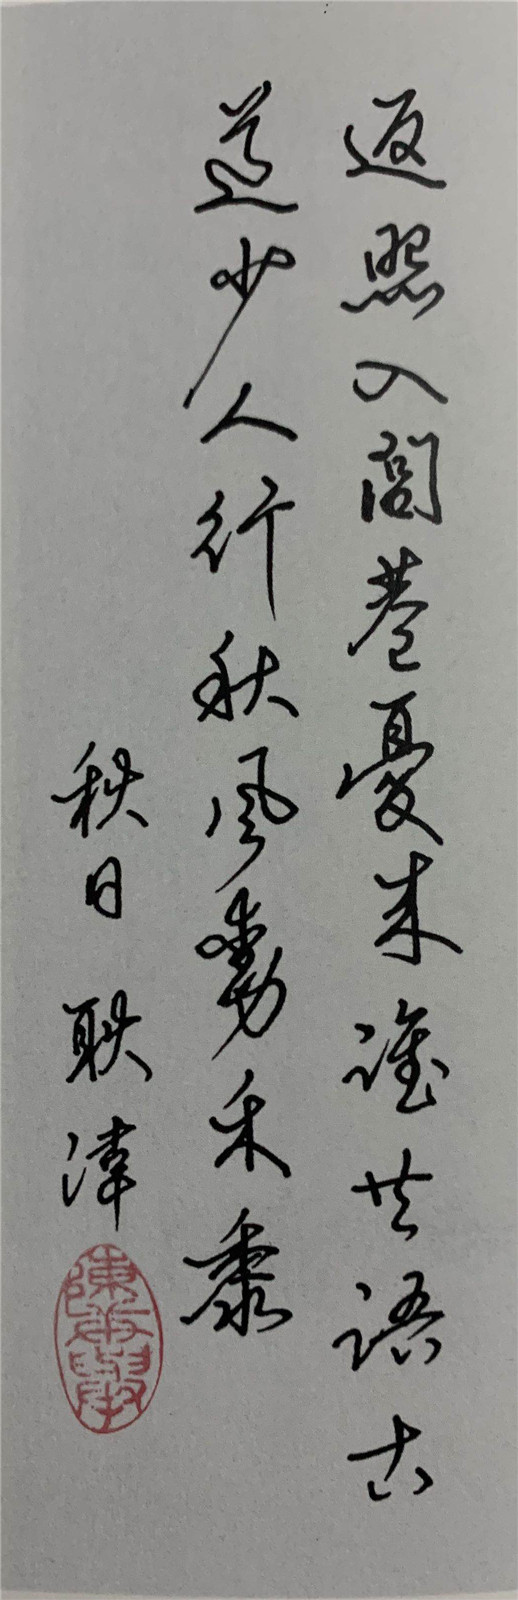 返照入閭巷憂来誰共語古
道少人行秋風動禾黍
秋日 耿湋